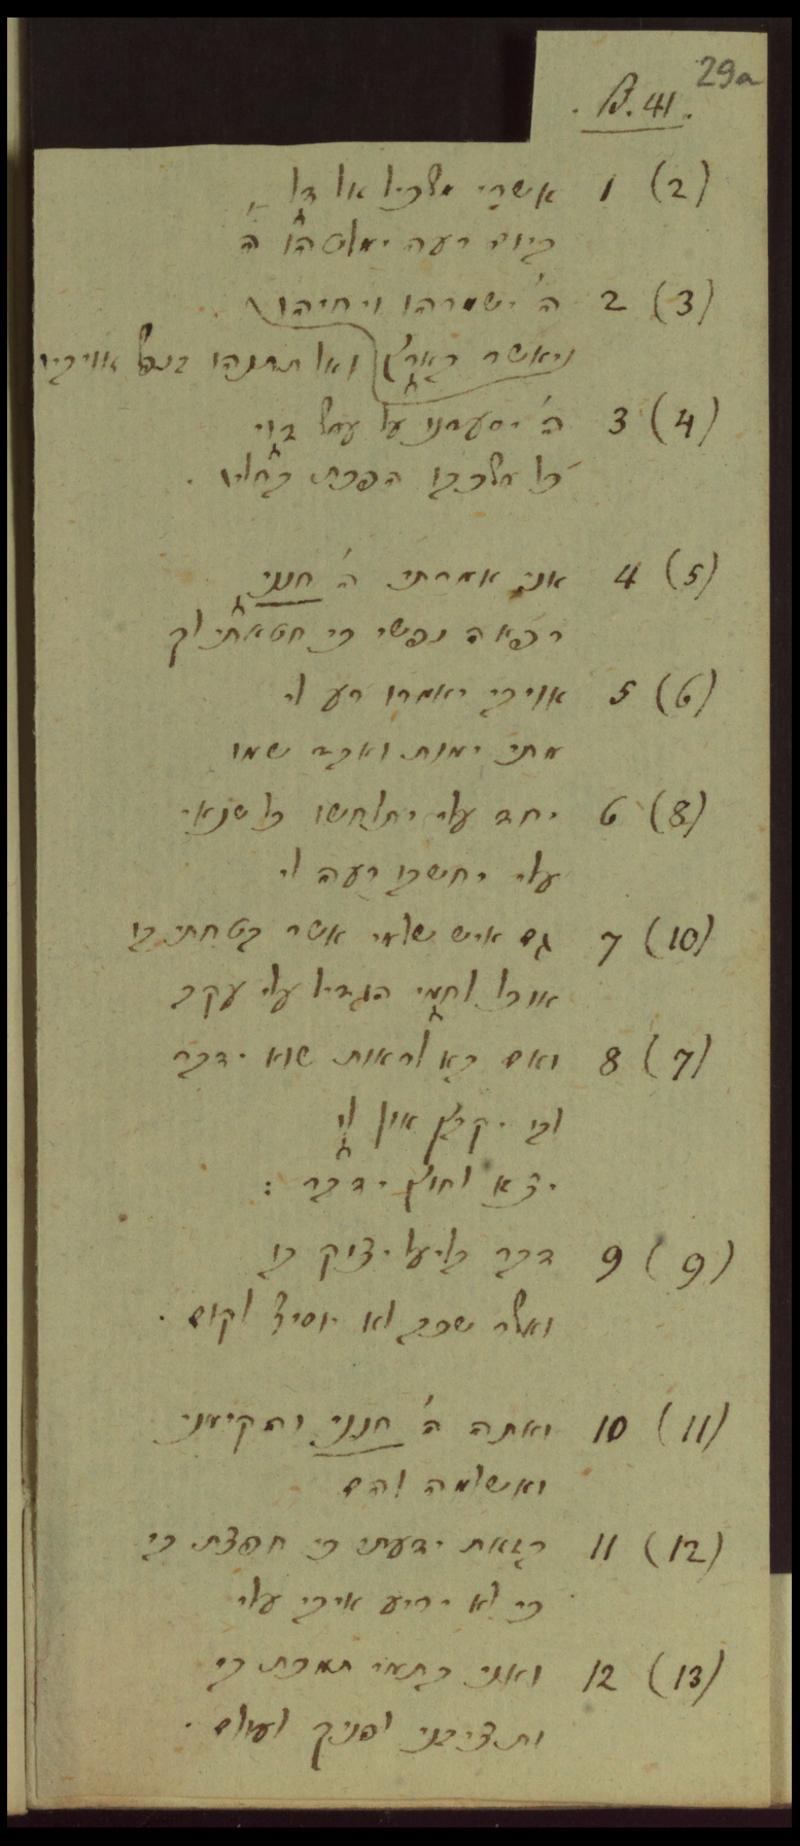 29a
B. 41.
(2) 1 אשרי משכיל אל דל
ביום רעה ימלטהו ה'
(3) 2 ה' ישמרהו ויחיהו
ואשר בארץ ואל תתנהו בנפש אויביו
(4) 3 ה' יסעדנו על ערש דוי
כל משכבו הפכת בחליו .
(5) 4 אני אמרתי ה' חנני
רפאה נפשי כי חטאתי לך
(6) 5 אויבי יאמרו רע לי
מתי ימות ואבד שמו
(8) 6 יחד עלי יתלחשו כל שנאי
עלי יחשבו רעה לי
(10) 7 גם איש שלמי אשר בטחתי בו
אוכל לחמי הגדיל עלי עקב
(7) 8 ואם בא לראות שוא ידבר
לבו יקבץ און לו
יצא לחוץ ידבר :
(9) 9 דבר בליעל יצוק בו
ואשר שכב לא יוסיף לקום .
(11) 10 ואתה ה' חנני והקימני
ואשלמה להם
(12) 11 בזאת ידעתי כי חפצת בי
כי לא יריע איבי עלי
(13) 12 ואני בתמי תמכת בי
ותציבני לפניך לעולם .